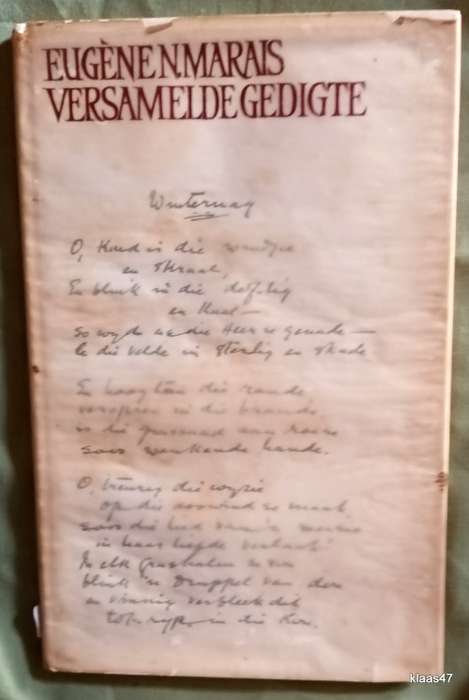 EUGÈNE N. MARAIS
VERSAMELDE GEDIGTE
Winternag
O, koud is die windjie
en skraal,
En blink in die dof-lig
en kaal –
so wyd as die Heer se genade –
le die velde in sterlig en skade
En hoog in die rande
versprei in die brande
is die grassaad aan roere
soos winkende hande.
O, treurig die wysie
op die ooswind se maat,
soos die lied van 'n meisie
in haar liefde verlaat
In elk grashalm se vou
blink 'n druppel van dou
en vinnig verbleek dit
tot ryp in die kou.
klaas47